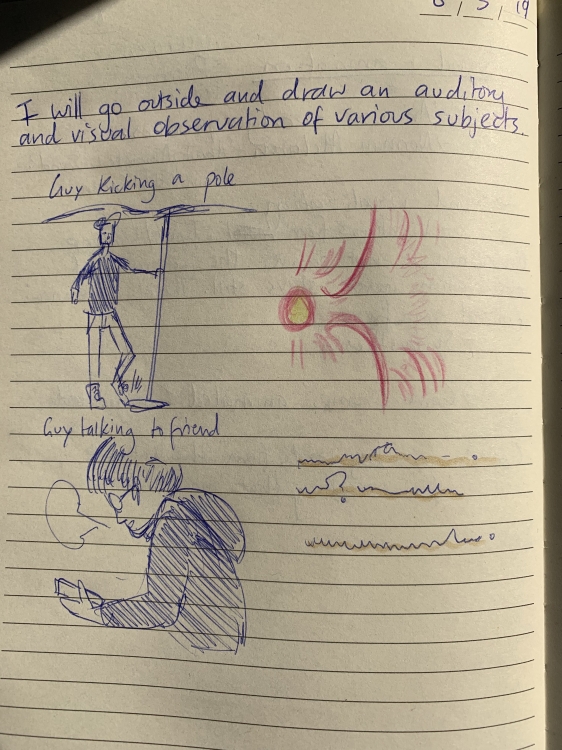 / 5 / 19
I will go outside and draw an auditory
and visual observation of various subjects.
Guy kicking a pole
Guy talking to friend